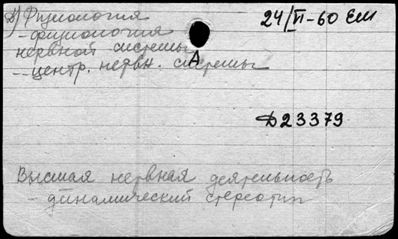 2) Физиология
24/II-60 ЕМ
- физиология
нервной системы
А
-- центр. нервн. системы
Д23379
Высшая нервная деятельность
- динамический стереотип